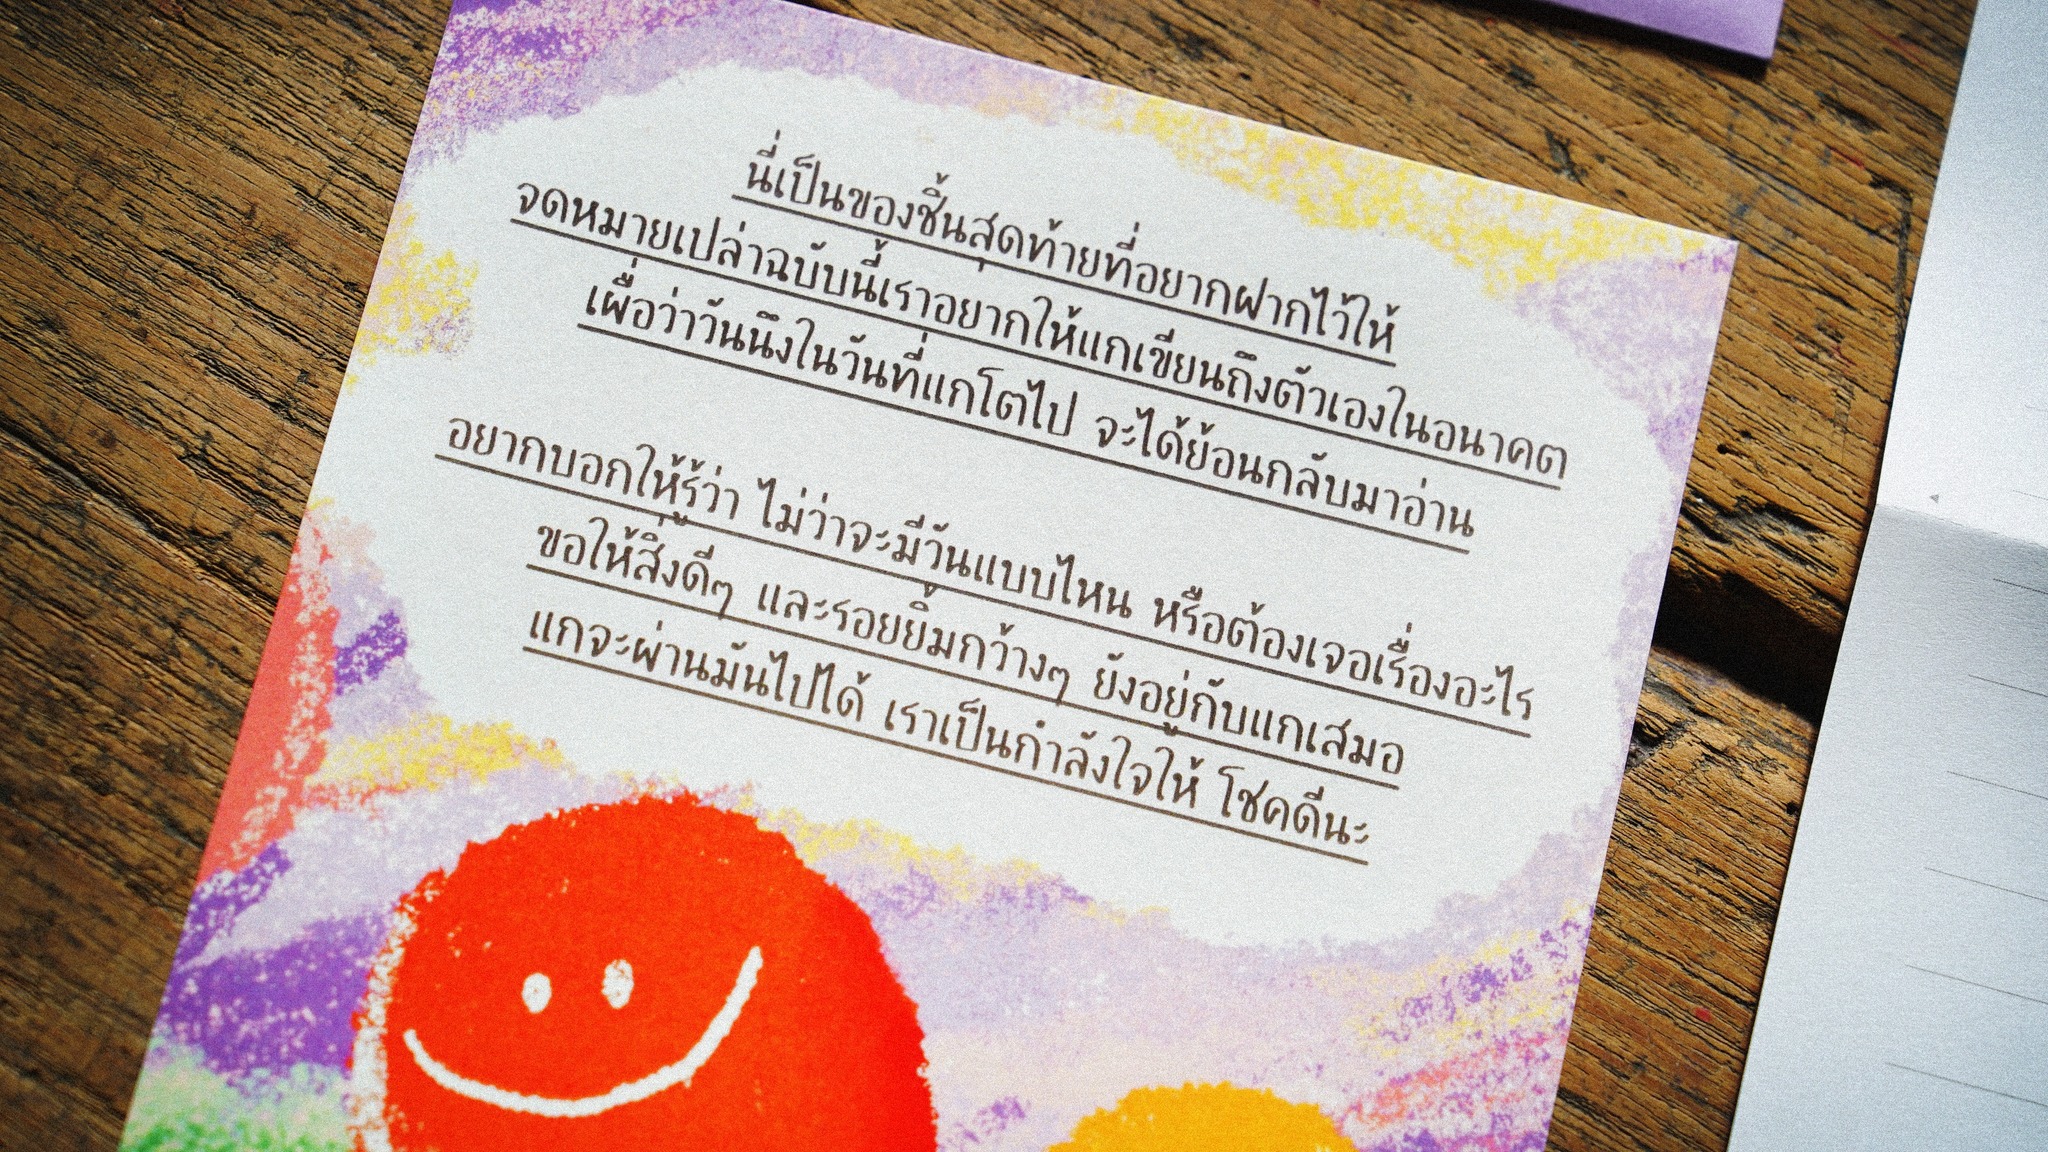 นี่เป็นของชิ้นสุดท้ายที่อยากฝากไว้ให้
จดหมายเปล่าฉบับนี้เราอยากให้แกเขียนถึงตัวเองในอนาคต
เผื่อว่าวันนึงในวันที่แกโตไป จะได้ย้อนกลับมาอ่าน
อยากบอกให้รู้ว่า ไม่ว่าจะมีวันแบบไหน หรือต้องเจอเรื่องอะไร
ขอให้สิ่งดีๆ และรอยยิ้มกว้างๆ ยังอยู่กับแกเสมอ
แกจะผ่านมันไปได้ เราเป็นกำลังใจให้ โชคดีนะ